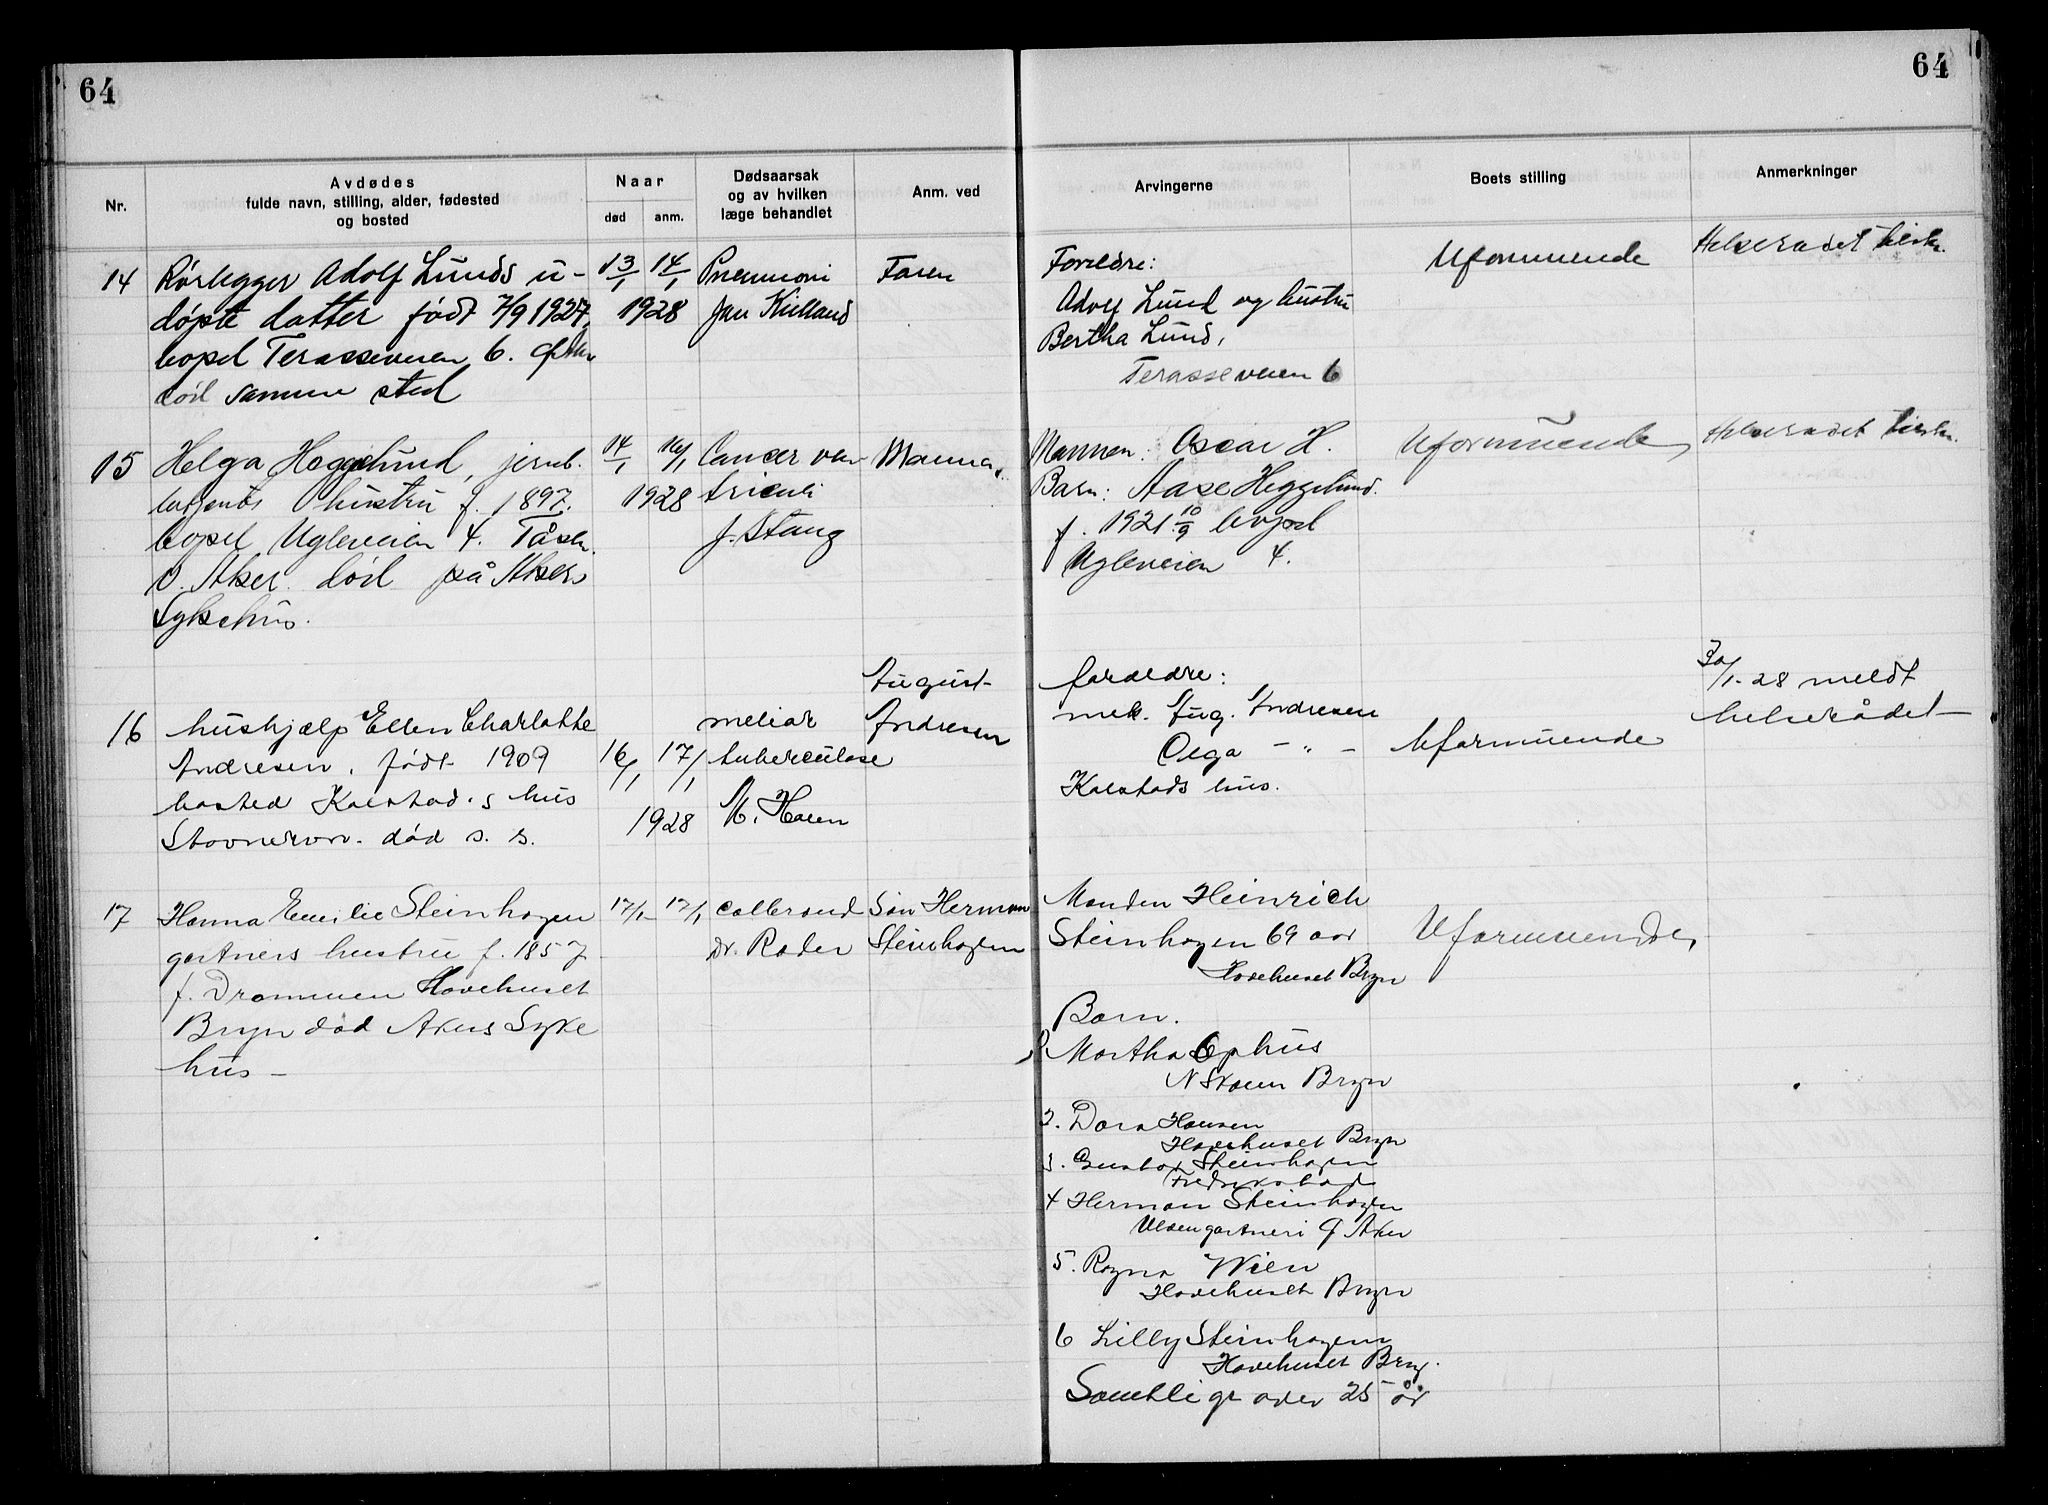 64
64
Nr.
Avdødes
fulde navn, stilling, alder, fødested
og bosted
Naar
død
anm.
Dødsaarsak
og av hvilken
læge behandlet
Anm. ved
Arvingerne
Boets stilling
Anmerkninger
14
Rørlegger Adolf Lunds u-
døpte datter født 7/9 1927,
bopel Terasseveien 6.
død samme sted
13/1 14/1
1928
Pneumoni
Jan Kielland
Faren
Foreldre:
Adolf Lund og hustru
Bertha Lund,
Terasseveien 6
Uformuende
Helserådet
15
Helga Heggelund, jernb.
hustru f. 1897.
bopel Ugleveien 4. Tåsen
V. Aker. død på Aker
Sykehus.
14/1 16/1
1928
Cancer ven-
triculi
J. Stang
Mannen
Mannen: Oscar H.
Barn: Aase Heggelund.
f. 1921 10/9 bopel
Ugleveien 4.
Uformuende
Helserådet
16
hushjælp Ellen Charlotte
Andresen, født 1909
bosted Kalstad.s hus
Stovnervn. død s. s.
16/1 17/1
1928
meliar
tuberculose
M. Haren
August
Andresen
foreldre:
mek. Aug. Andresen
Olga - " -
Kalstads hus.
Uformuende
30/1-28 meldt
helserådet
17
Hanna Emilie Steinhagen
gartners hustru f. 1857
f. Drammen Havehuset
Bryn død Akers Syke
hus -
17/1- 17/1
Dr. Roder
Søn Herman
Steinhagen
Manden Heinrich
Steinhagen 69 aar
Havehuset Bryn
Barn.
Martha Ophus
N Skøien Bryn
2. Dora Hansen
Havehuset Bryn
3. Gustav Steinhagen
Fredrikstad
4 Herman Steinhagen
gartneri Ø Aker
5. Ragna Wien
Havehuset Bryn
6 Lilly Steinhagen
Havehuset Bryn.
Samtlige over 25 år
Uformuende